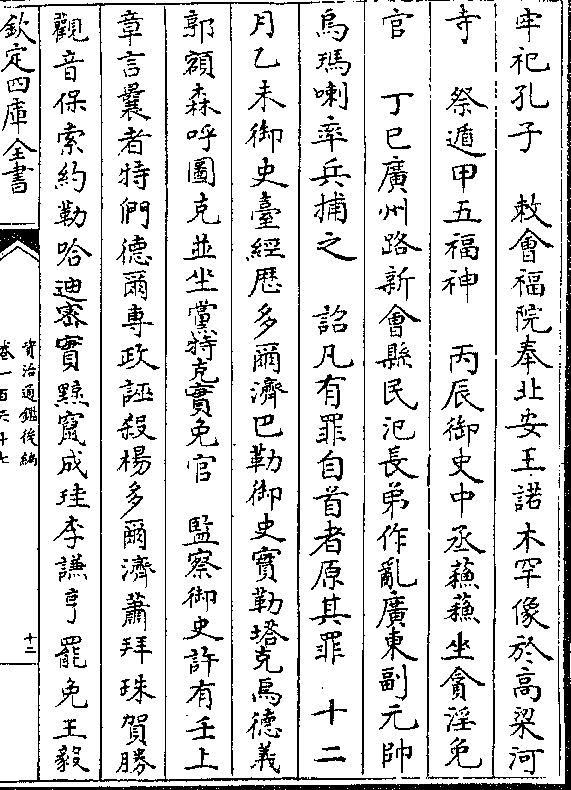 牢祀孔子　敕會福院奉北安王諾木罕像於高梁河
寺　祭遁甲五福神　丙辰御史中丞蘓蘓坐貪淫免
官　丁巳廣州路新會縣民氾長弟作亂廣東副元帥
烏瑪喇率兵捕之　詔凡有罪自首者原其罪　十二
月乙未御史臺經歴多爾濟巴勒御史實勒塔克烏德義
郭額森呼圖克並坐黨特克實免官　監察御史許有壬上
章言曩者特們德爾専政誣殺楊多爾濟蕭拜珠賀勝
觀音保索約勒哈迪密實黥竄成珪李謙亨罷免王毅
欽定四庫全書
資治通鑑後編
卷一百六十七
十二